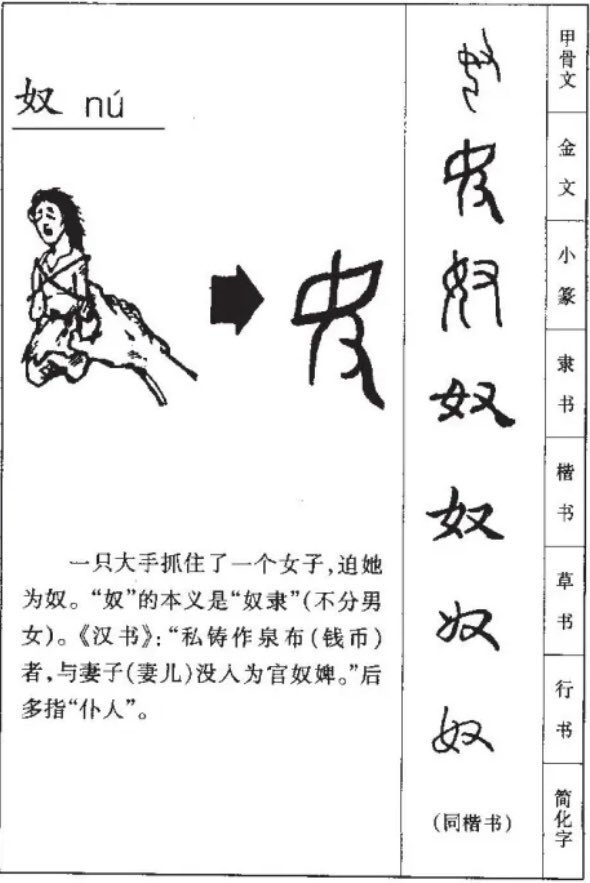 奴 nú
一只大手抓住了一个女子，迫她
为奴。“奴”的本义是“奴隶”(不分男
女)。《汉书》：“私铸作泉布(钱币)
者，与妻子(妻儿)没入为官奴婢。”后
多指“仆人”。
奴
奴
奴
奴
奴
奴
奴
(同楷书)
甲骨文
金文
小篆
隶书
楷书
草书
行书
简化字